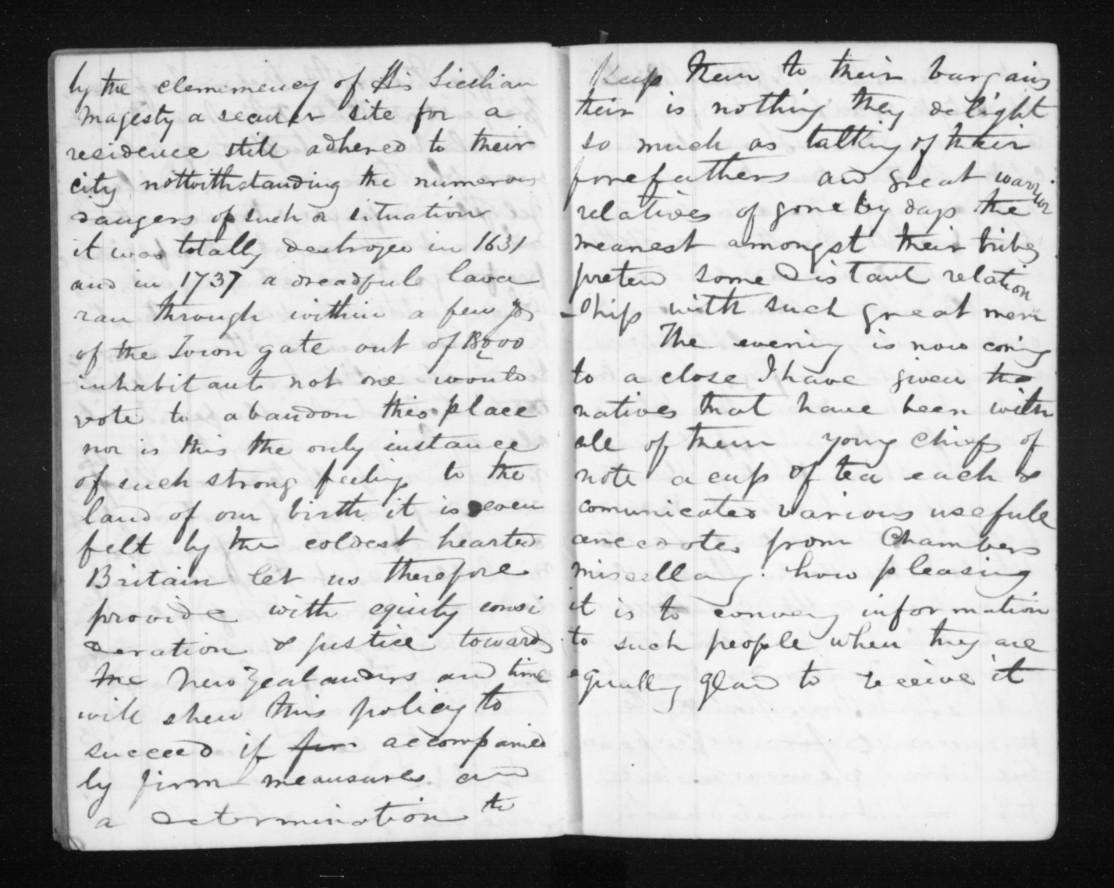 by the clememency of His Sicilian
Majesty a secuter site for a
residence still adhered to their
city nottwithstanding the numerous
dangers of such a situation
it was totally destroyed in 1631
and in 1737 a dreadful lava
ran through within a few yds
of the Town gate out of 18000
inhabitants not one would
vote to abandon this place
nor is this the only instance
of such strong feeling to the
land of our birth it is even
felt by the coldest hearted
Britain let us therefore
provide with equity consi
deration & justice toward
the New Zealanders and time
will shew this policy to
succeed if firm accompanied
by firm meausures and
a determination to
Keep them to their bargains
their is nothing they delight
so much as talking of their
forefathers and great warrior
relatives of gone by days the
meanest amongst their tribes
pretend some distant relation
ship with such great men
The evening is now coming
to a close I have given the
natives that have been with
all of them young chiefs of
note a cup of tea each &
comunicated various usefull
anecdotes from Chambers
miscellany. how pleasing
it is to convey information
to such people when they are
equally glad to receive it